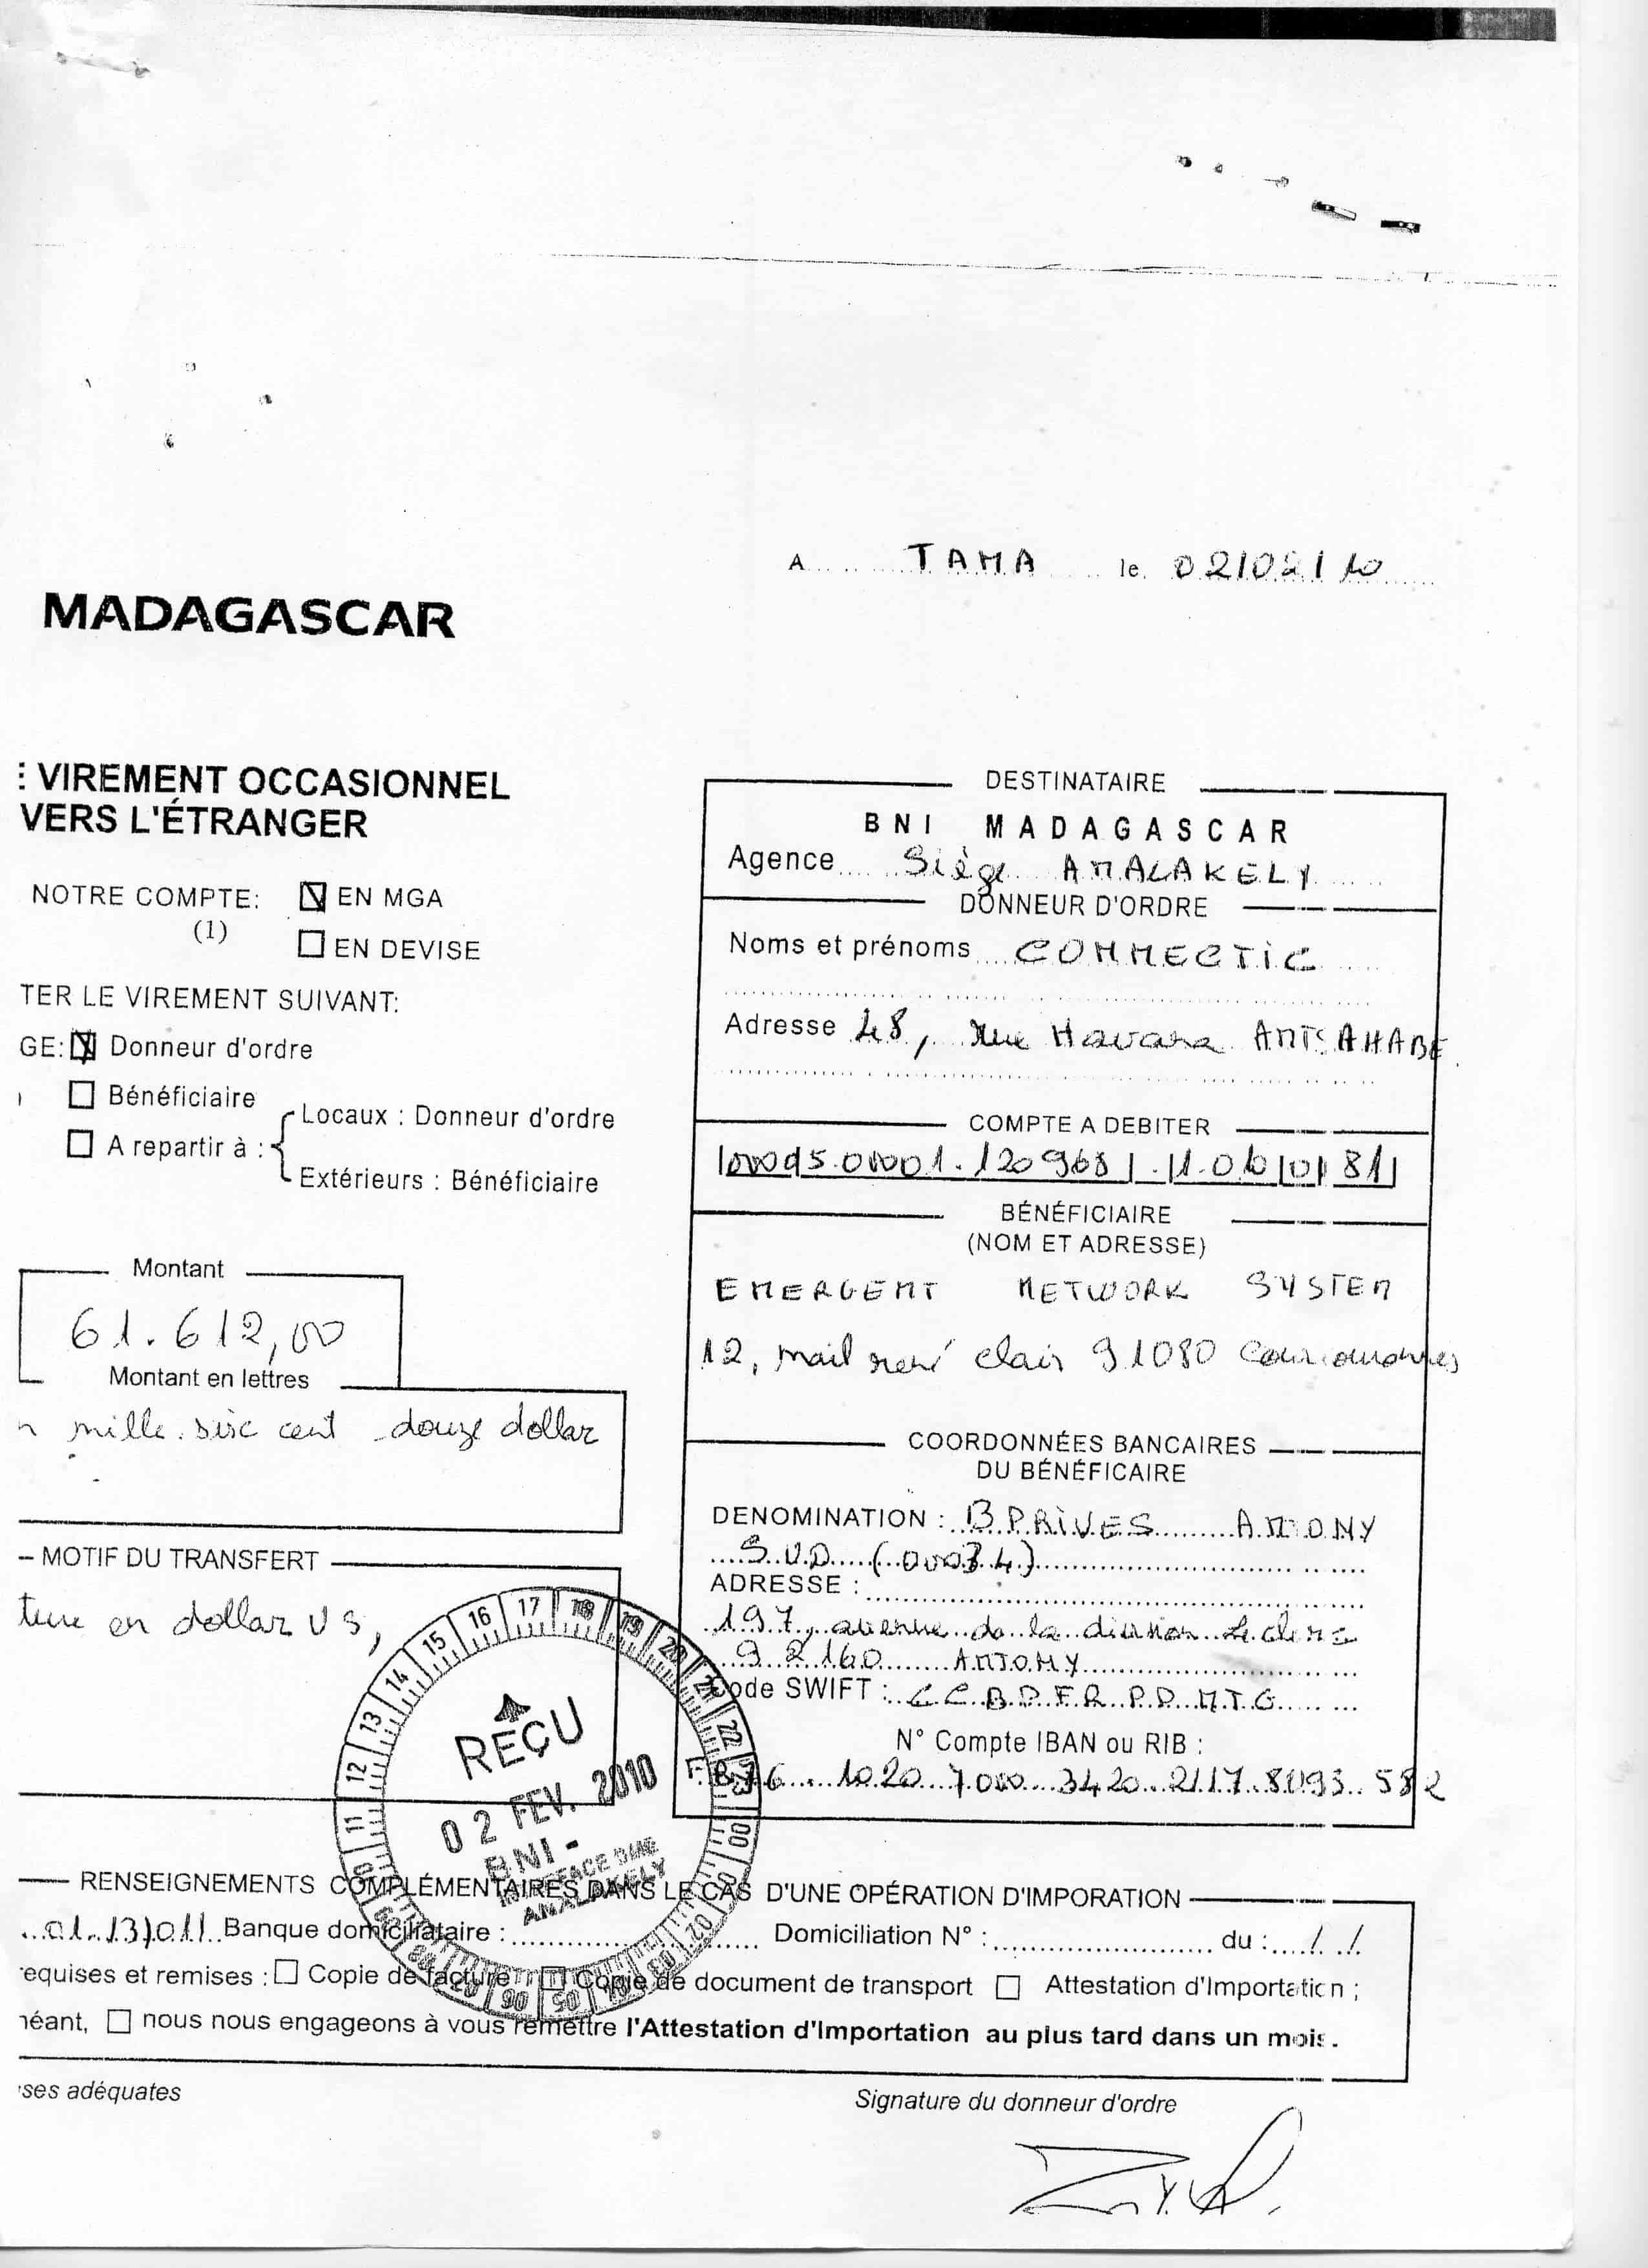 A TANA le 02/02/10
MADAGASCAR
: VIREMENT OCCASIONNEL
VERS L'ÉTRANGER
NOTRE COMPTE: EN MGA
(1)
EN DEVISE
TER LE VIREMENT SUIVANT:
GE: Donneur d'ordre
Bénéficiaire
A repartir à :
Locaux : Donneur d'ordre
Extérieurs : Bénéficiaire
Montant
61.612,00
Montant en lettres
mille six cent douze dollar
– MOTIF DU TRANSFERT
ture en dollar US,
DESTINATAIRE
BNI MADAGASCAR
Agence Siège ANALAKELY
DONNEUR D'ORDRE
Noms et prénoms CONNECTIC
Adresse 48, rue Havana ANTSAHABE
COMPTE A DEBITER
BÉNÉFICIAIRE
(NOM ET ADRESSE)
EMERGENT NETWORK SYSTEM
12, mail rené clair 91080 Courcouronnes
COORDONNÉES BANCAIRES
DU BÉNÉFICAIRE
DENOMINATION : BPRIVES ANTONY
SUD (00034)
ADRESSE :
197, avenue de la division Leclerc
92160 ANTONY
Code SWIFT : CCBPFRPPMTG
N° Compte IBAN ou RIB :
FR76 1020 7000 3420 2117 8093 582
REÇU
02 FEV. 2010
BNI -
ANALAKELY
RENSEIGNEMENTS COMPLÉMENTAIRES DANS LE CAS D'UNE OPÉRATION D'IMPORATION
Banque domiciliataire : Domiciliation N° : du : / /
equises et remises : Copie de facture Copie de document de transport Attestation d'Importation ;
néant, nous nous engageons à vous remettre l'Attestation d'Importation au plus tard dans un mois.
ses adéquates
Signature du donneur d'ordre